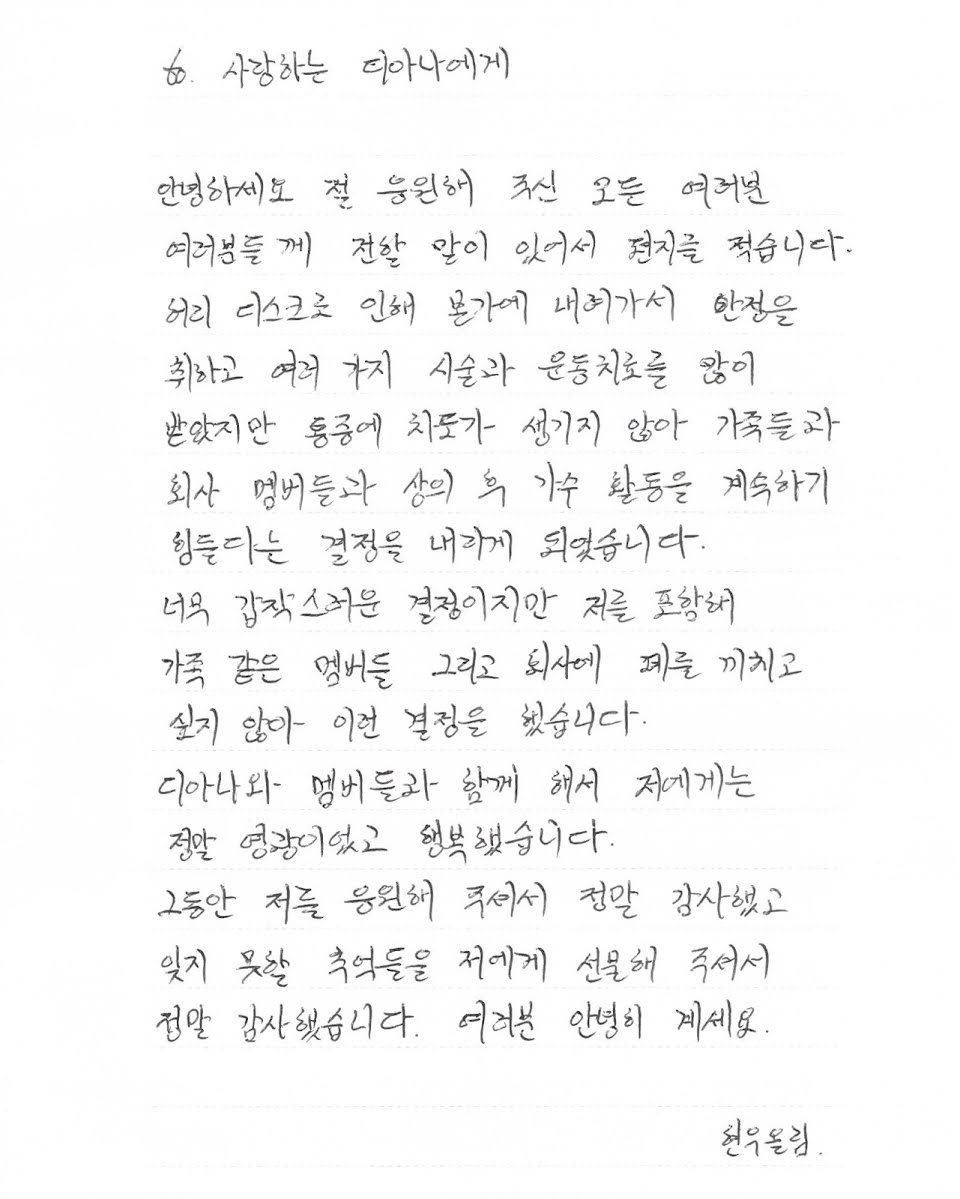 to. 사랑하는 디아나에게
안녕하세요 절 응원해 주신 모든 여러분
여러분들 께 전할 말이 있어서 편지를 적습니다.
허리 디스크로 인해 본가에 내려가서 안정을
취하고 여러 가지 시술과 운동치료를 많이
받았지만 통증에 차도가 생기지 않아 가족들과
회사 멤버들과 상의 후 가수 활동을 계속하기
힘들다는 결정을 내리게 되었습니다.
너무 갑작스러운 결정이지만 저를 포함해
가족 같은 멤버들 그리고 회사에 폐를 끼치고
싶지 않아 이런 결정을 했습니다.
디아나와 멤버들과 함께 해서 저에게는
정말 영광이었고 행복했습니다.
그동안 저를 응원해 주셔서 정말 감사했고
잊지 못할 추억들을 저에게 선물해 주셔서
정말 감사했습니다. 여러분 안녕히 계세요.
현우올림.